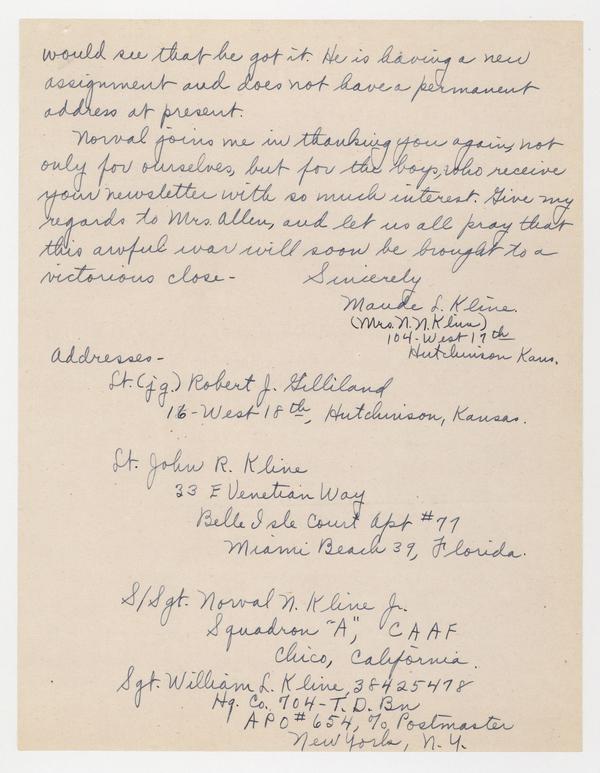 would see that he got it. He is having a new
assignment and does not have a permanent
address at present.
Norval joins me in thanking you again, not
only for ourselves, but for the boys, who receive
your newsletter with so much interest. Give my
regards to Mrs. Allen, and let us all pray that
this awful war will soon be brought to a
victorious close - Sincerely
Maude L. Kline.
(Mrs. N. N. Kline)
104 - West 17th
Hutchinson Kans.
Addresses -
Lt. (jg.) Robert J. Gilliland
16 - West 18th, Hutchinson, Kansas.
Lt. John R. Kline
33 E Venetian Way
Belle Isle Court Apt #77
Miami Beach 39, Florida.
S/Sgt. Norval N. Kline Jr.
Squadron "A", CAAF
Chico, California.
Sgt. William L. Kline, 38425478
Hq. Co. 704 - T. D. Bn
APO #654, % Postmaster
New York, N. Y.